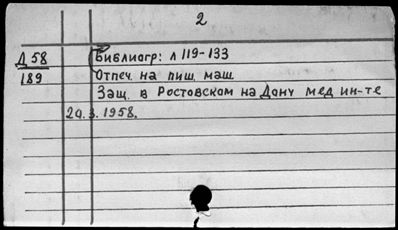 2
Д 58
189
Библиагр: л 119-133
Отпеч. на пиш. маш
Защ. в Ростовском на Дону мед ин-те
29.3.1958.